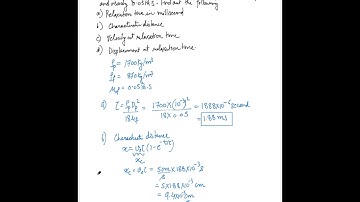 and viscosity 0.05 Pa.S. Find out the following
a) Relaxation time in millisecond
b) Characteristic distance
c) Velocity at relaxation time
d) Displacement at relaxation time
ρp = 1700 kg/m³
ρf = 870 kg/m³
μf = 0.05 Pa.S
a) τ = ρp Dp² / 18μf = 1700 × (10⁻³)² / 18 × 0.05 = 1888 × 10⁻⁶ second
= 1.88 ms
b) Characteristic distance
x = v₀τ (1 - e^(-t/τ))
xc
xc = v₀τ = 50 m/s × 1.88 × 10⁻³ s
= 5 × 1.88 × 10⁻³ cm
= 9.4 × 10⁻³ cm